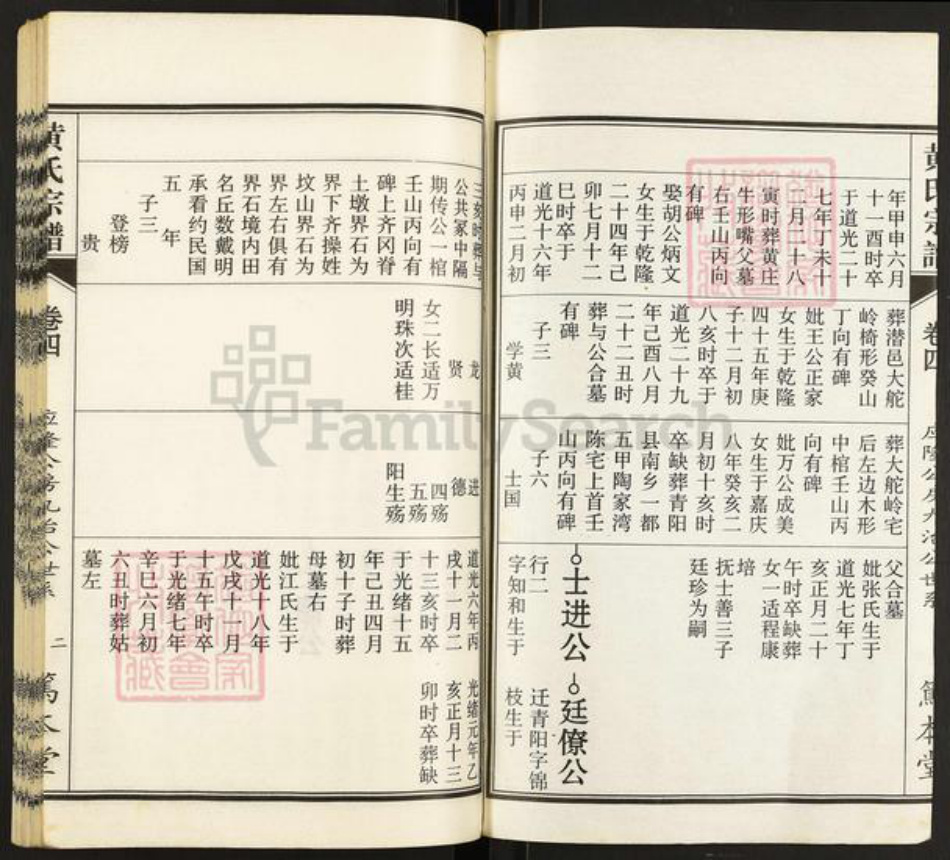 黄氏宗谱
卷四
笃本堂
年甲申六月
十一酉时卒
于道光二十
七年丁未十
二月二十八
寅时葬黄庄
牛形嘴父墓
右壬山丙向
有碑
娶胡公炳文
女生于乾隆
二十四年己
卯七月十二
巳时卒于
道光十六年
丙申二月初
葬潜邑大舵
岭椅形癸山
丁向有碑
妣王公正家
女生于乾隆
四十五年庚
子十二月初
八亥时卒于
道光二十九
年己酉八月
二十二丑时
葬与公合墓
有碑
子三
学黄
葬大舵岭宅
后左边木形
中棺壬山丙
向有碑
妣万公成美
女生于嘉庆
八年癸亥二
月初十亥时
卒缺葬青阳
县南乡一都
五甲陶家湾
陈宅上首壬
山丙向有碑
子六
士国
父合墓
妣张氏生于
道光七年丁
亥正月二十
午时卒缺葬
女一适程康
培
抚士善三子
廷珍为嗣
士进公
行二
字知和生于
廷僚公
迁青阳字锦
枝生于
公共冢中隔
期传公一棺
壬山丙向有
碑上齐冈脊
土墩界石为
界下齐操姓
坟山界石为
界左右俱有
界石境内田
名丘数戴明
承看约民国
五年
子三
登榜
贵
龙
贤
女二长适万
明珠次适桂
进
德
四殇
五殇
阳生殇
道光六年丙
戌十一月二
十三亥时卒
于光绪十五
年己丑四月
初十子时葬
母墓右
妣江氏生于
道光十八年
戊戌十一月
十五午时卒
于光绪七年
辛巳六月初
六丑时葬姑
墓左
光绪元年乙
亥正月十三
卯时卒葬缺
黄氏宗谱
卷四
二
笃本堂
FamilySearch